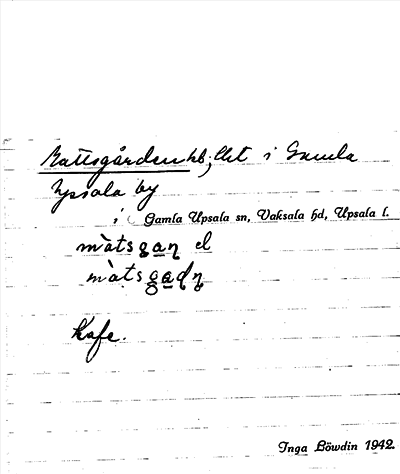 Mattsgården hb, lht i Gamla
Upsala by
i Gamla Upsala sn, Vaksala hd, Upsala l.
màtsgaṇ el
màtsgaḍṇ
Kafe.
Inga Löwdin 1942.